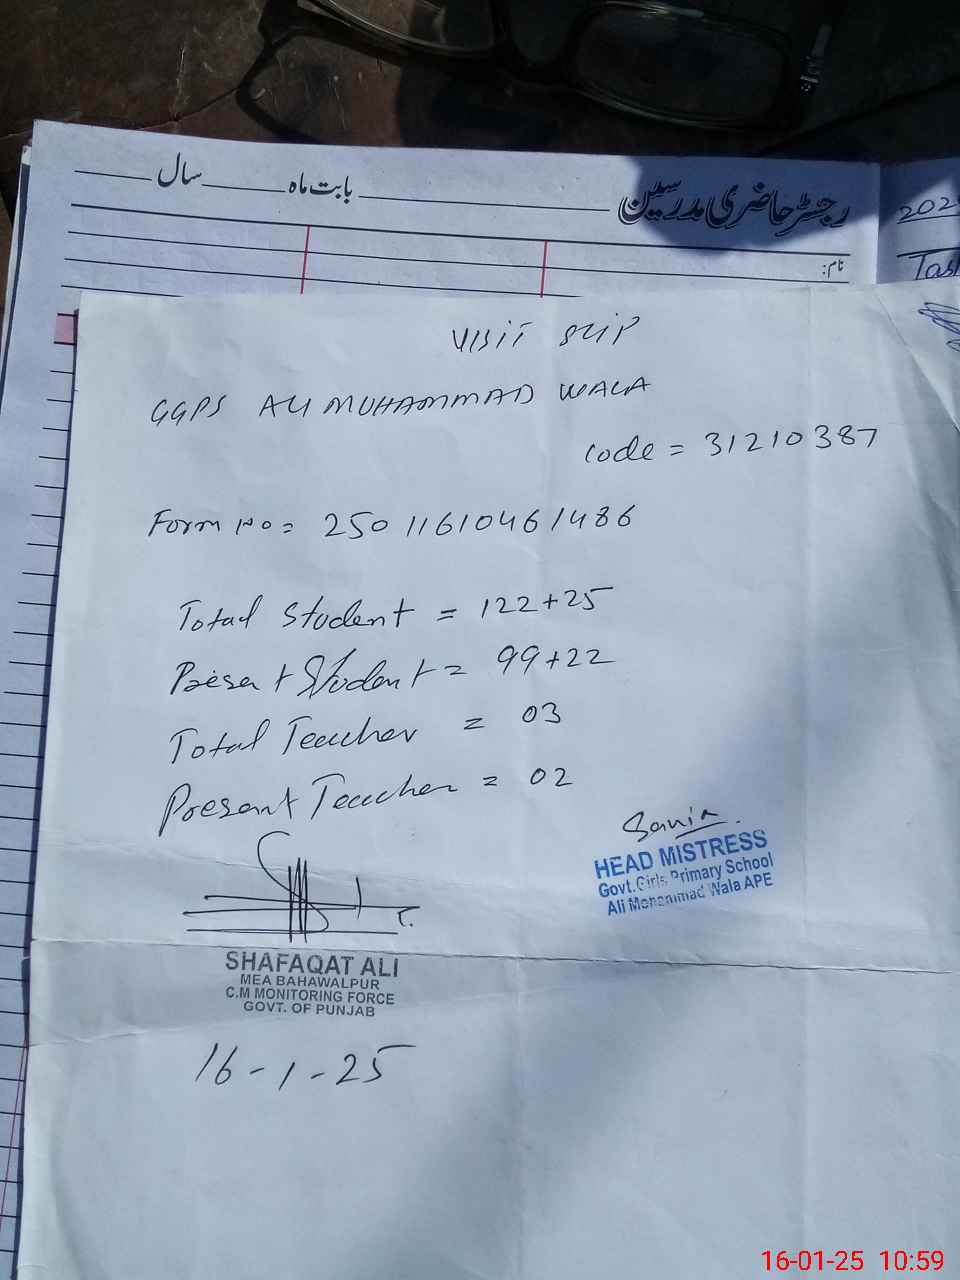 رجسٹر حاضری مدرسین
بابت ماہ سال
نام:
202
Tas
VISIT SLIP
GGPS ALI MUHAMMAD WALA
code = 31210387
Form No = 25011610461486
Total Student = 122+25
Present Student = 99+22
Total Teacher = 03
Present Teacher = 02
Sania
HEAD MISTRESS
Govt. Girls Primary School
Ali Mohammad Wala APE
SHAFAQAT ALI
MEA BAHAWALPUR
C.M MONITORING FORCE
GOVT. OF PUNJAB
16-1-25
16-01-25 10:59